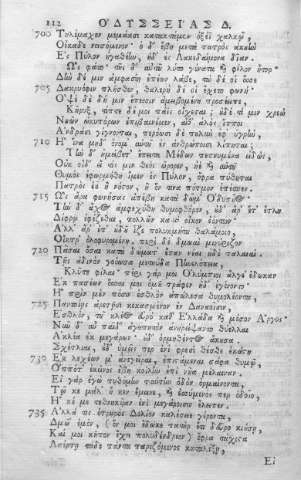 112 ΟΔΥΣΣΕΙΑΣ Δ.
700 Τηλέμαχον μεμάασι κατακτάμεν ὀξέϊ χαλκῷ,
Οἴκαδε νισσόμενον· ὁ δ' ἔβη μετὰ πατρὸς ἀκουὴν
Ἐς Πύλον ἠγαθέην, ἠδ' ἐς Λακεδαίμονα δῖαν.
Ὣς φάτο· τῆς δ' αὐτοῦ λύτο γούνατα καὶ φίλον ἦτορ·
Δὴν δέ μιν ἀμφασίη ἐπέων λάβε, τὼ δέ οἱ ὄσσε
705 Δακρυόφιν πλῆσθεν, θαλερὴ δέ οἱ ἔσχετο φωνή·
Ὀψὲ δὲ δή μιν ἔπεσσιν ἀμειβομένη προσέειπε,
Κῆρυξ, τίπτε δέ μοι παῖς οἴχεται; οὐδέ τί μιν χρεὼ
Νηῶν ὠκυπόρων ἐπιβαινέμεν, αἵθ' ἁλὸς ἵπποι
Ἀνδράσι γίγνονται, περόωσι δὲ πουλὺν ἐφ' ὑγρήν.
710 Ἦ ἵνα μηδ' ὄνομ' αὐτοῦ ἐν ἀνθρώποισι λίπηται;
Τὴν δ' ἠμείβετ' ἔπειτα Μέδων πεπνυμένα εἰδώς,
Οὐκ οἶδ' εἴ τίς μιν θεὸς ὤρορεν, ἠὲ καὶ αὐτοῦ
Θυμὸς ἐφωρμήθη ἴμεν ἐς Πύλον, ὄφρα πύθηται
Πατρὸς ἑοῦ ἢ νόστον, ἢ ὅν τινα πότμον ἐπέσπεν.
715 Ὣς ἄρα φωνήσας ἀπέβη κατὰ δῶμ' Ὀδυσῆος.
Τὴν δ' ἄχος ἀμφεχύθη θυμοφθόρον, οὐδ' ἄρ' ἔτ' ἔτλη
Δίφρῳ ἐφέζεσθαι, πολλῶν κατὰ οἶκον ἐόντων·
Ἀλλ' ἄρ' ἐπ' οὐδοῦ ἷζε πολυκμήτου θαλάμοιο,
Οἴκτρ' ὀλοφυρομένη· περὶ δὲ δμωαὶ μινύριζον
720 Πᾶσαι ὅσαι κατὰ δώματ' ἔσαν νέαι ἠδὲ παλαιαί.
Τῇς δ' ἁδινὸν γοόωσα μετηύδα Πηνελόπεια,
Κλῦτε φίλαι· περὶ γάρ μοι Ὀλύμπιος ἄλγε' ἔδωκεν
Ἐκ πασέων ὅσσαι μοι ὁμοῦ τράφεν ἠδ' ἐγένοντο·
Ἣ πρὶν μὲν πόσιν ἐσθλὸν ἀπώλεσα θυμολέοντα,
725 Παντοίῃς ἀρετῇσι κεκασμένον ἐν Δαναοῖσιν
Ἐσθλὸν, τοῦ κλέος εὐρὺ καθ' Ἑλλάδα καὶ μέσον Ἄργος·
Νῦν δ' αὖ παῖδ' ἀγαπητὸν ἀνηρείψαντο θύελλαι
Ἀκλέα ἐκ μεγάρων· οὐδ' ὁρμηθέντος ἄκουσα.
Σχέτλιαι, οὐδ' ὑμεῖς περ ἐνὶ φρεσὶ θέσθε ἑκάστη
730 Ἐκ λεχέων μ' ἀνεγεῖραι, ἐπιστάμεναι σάφα θυμῷ,
Ὁππότ' ἐκεῖνος ἔβη κοίλην ἐπὶ νῆα μέλαιναν.
Εἰ γὰρ ἐγὼ πυθόμην ταύτην ὁδὸν ὁρμαίνοντα,
Τῷ κε μάλ' ἤ κεν ἔμεινε, καὶ ἐσσύμενός περ ὁδοῖο,
Ἤ κέ με τεθνηκυῖαν ἐνὶ μεγάροισιν ἔλειπεν.
735 Ἀλλά τις ὀτρηρῶς Δολίον καλέσειε γέροντα,
Δμῶ' ἐμὸν, (ὅν μοι ἔδωκε πατὴρ ἔτι δεῦρο κιούσῃ,
Καί μοι κῆπον ἔχει πολυδένδρεον) ὄφρα τάχιστα
Λαέρτῃ τάδε πάντα παρεζόμενος καταλέξῃ,
Εἰ